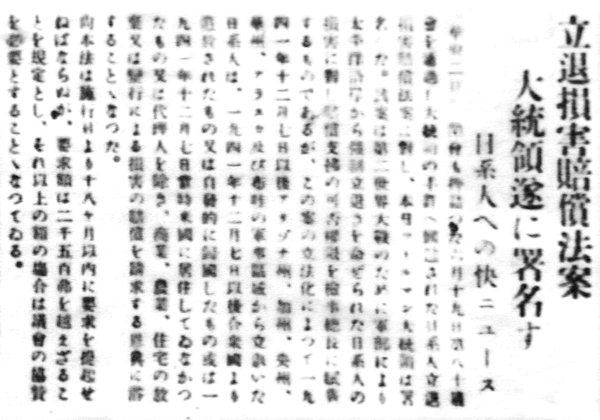 立退損害賠償法案
大統領遂に署名す
日系人への快ニュース
華府二日 六月十九日第八十議
會を通過し大統領の手許へ 日系人立退
損害賠償法案に對し、本日トルーマン大統領は署
名した。該案は第二世界大戰のために軍部により
太平洋沿岸から強制立退きを命ぜられた日系人の
損害に對し賠償支拂の可否權限を檢事總長に賦與
するものであるが、この案の立法化によつて一九
四一年十二月七日以後アリゾナ州、加州、央州、
華州、アラスカ及び布哇の軍事區域から立退いた
日系人は、一九四一年十二月七日以後合衆國より
追放されたもの又は自發的に歸國したもの或は一
九四一年十二月七日當時米國に居住してゐなかつ
たもの又は代理人を除き、商業、農業、住宅の放
棄又は立退による損害の賠償を請求する恩典に浴
することゝなつた。
尚本法は施行日より十八ヶ月以内に要求を提起せ
ねばならぬが、要求額は二千五百弗を越えざるこ
とを規定とし、それ以上の額の場合は議會の協賛
を必要とすることゝなつてゐる。